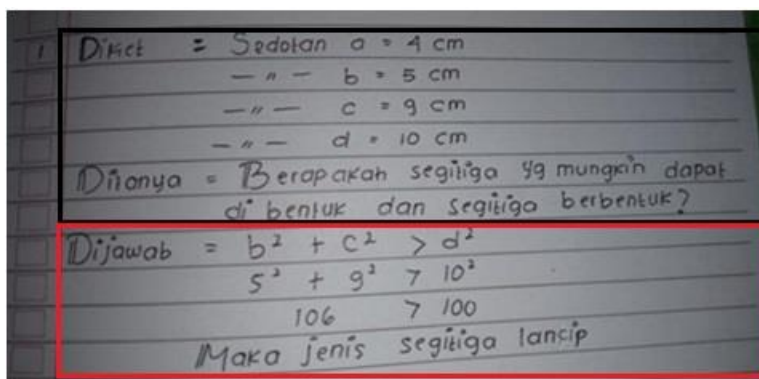 1 Diket = Sedotan a = 4 cm
— " — b = 5 cm
— " — c = 9 cm
— " — d = 10 cm
Ditanya = Berapakah segitiga yg mungkin dapat
di bentuk dan segitiga berbentuk?
Dijawab = b² + c² > d²
5² + 9² > 10²
106 > 100
Maka jenis segitiga lancip